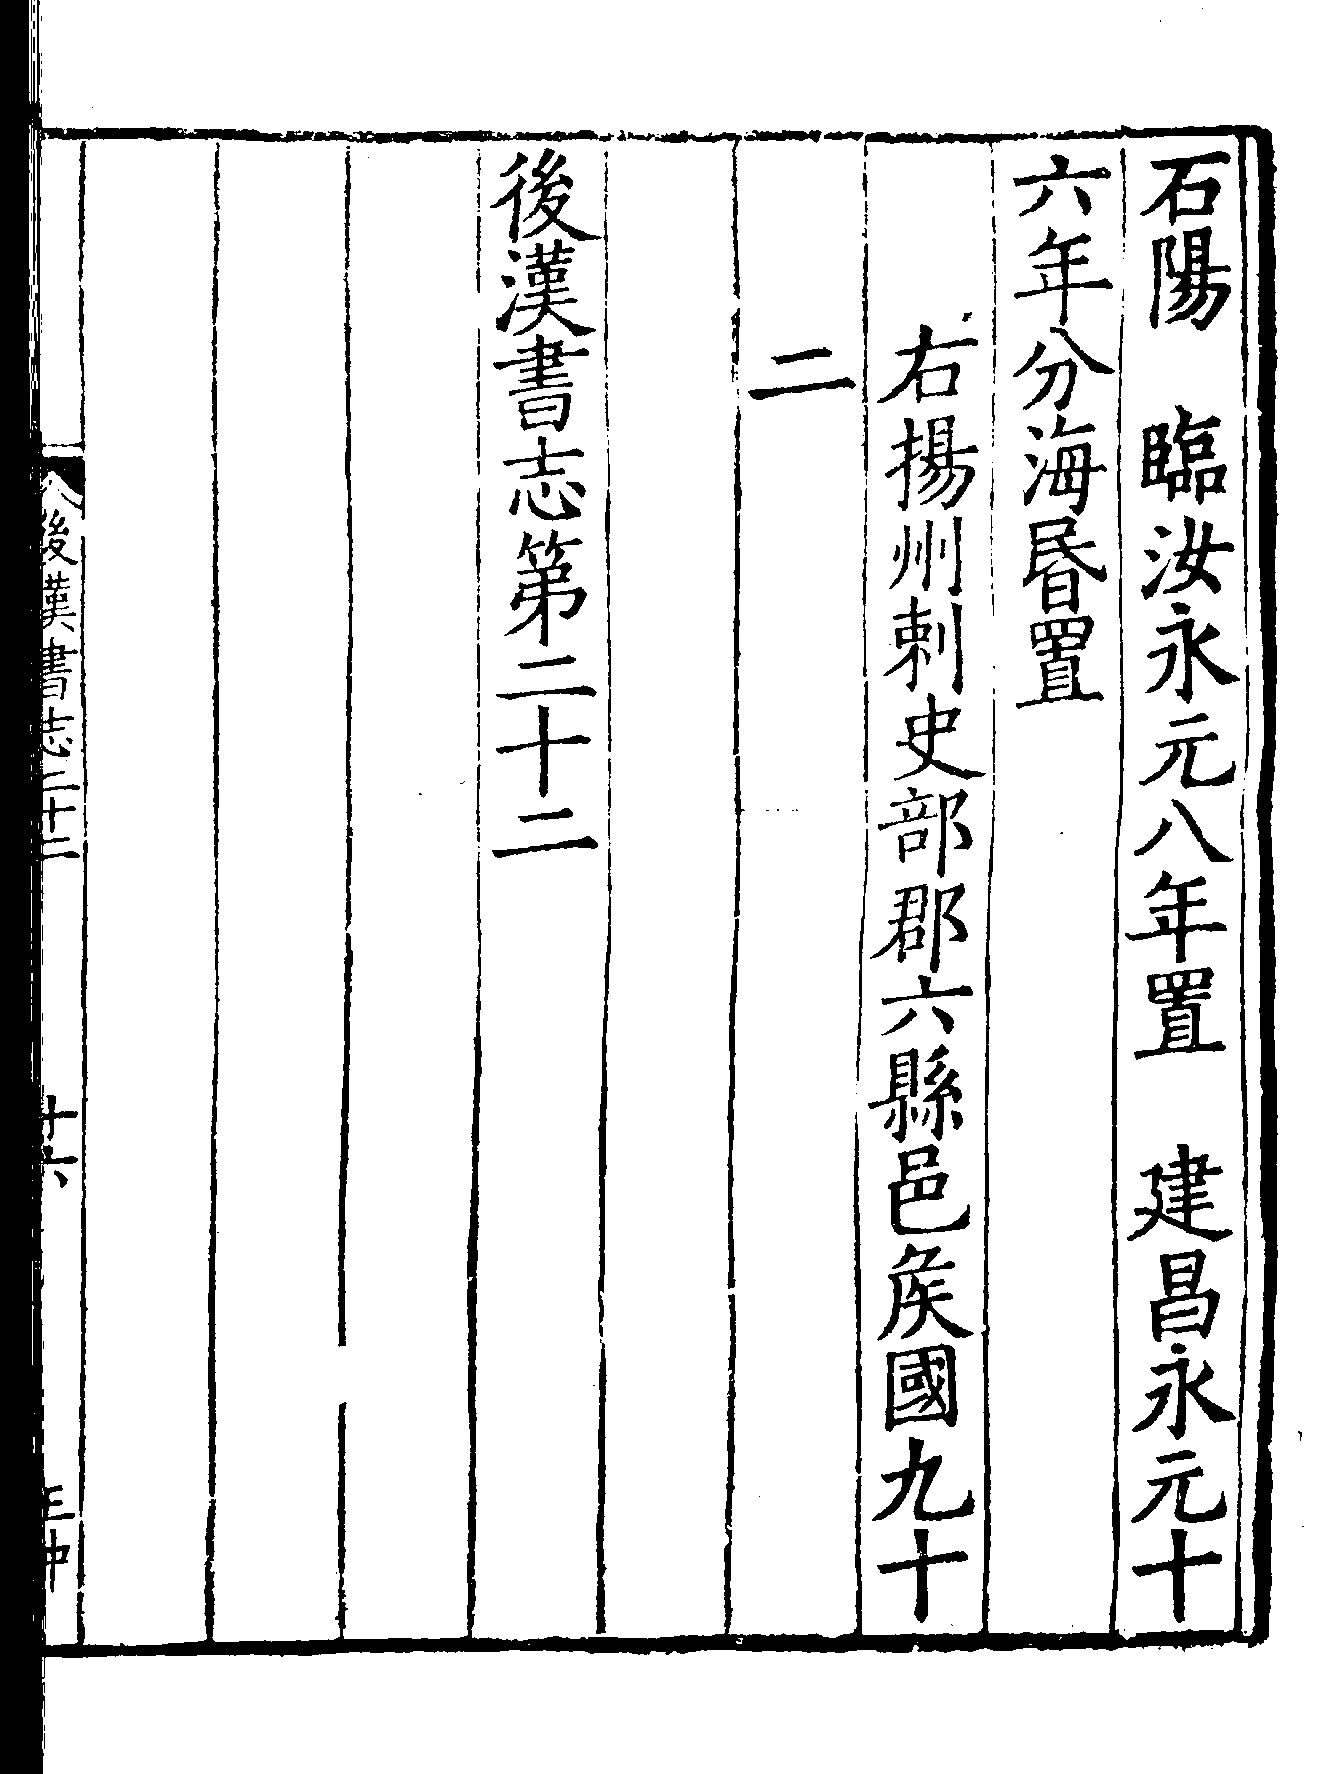 石陽　臨汝永元八年置　建昌永元十
六年分海昬置
右揚州刺史部郡六縣邑矦國九十
二
後漢書志第二十二
後漢書志二十二
十六